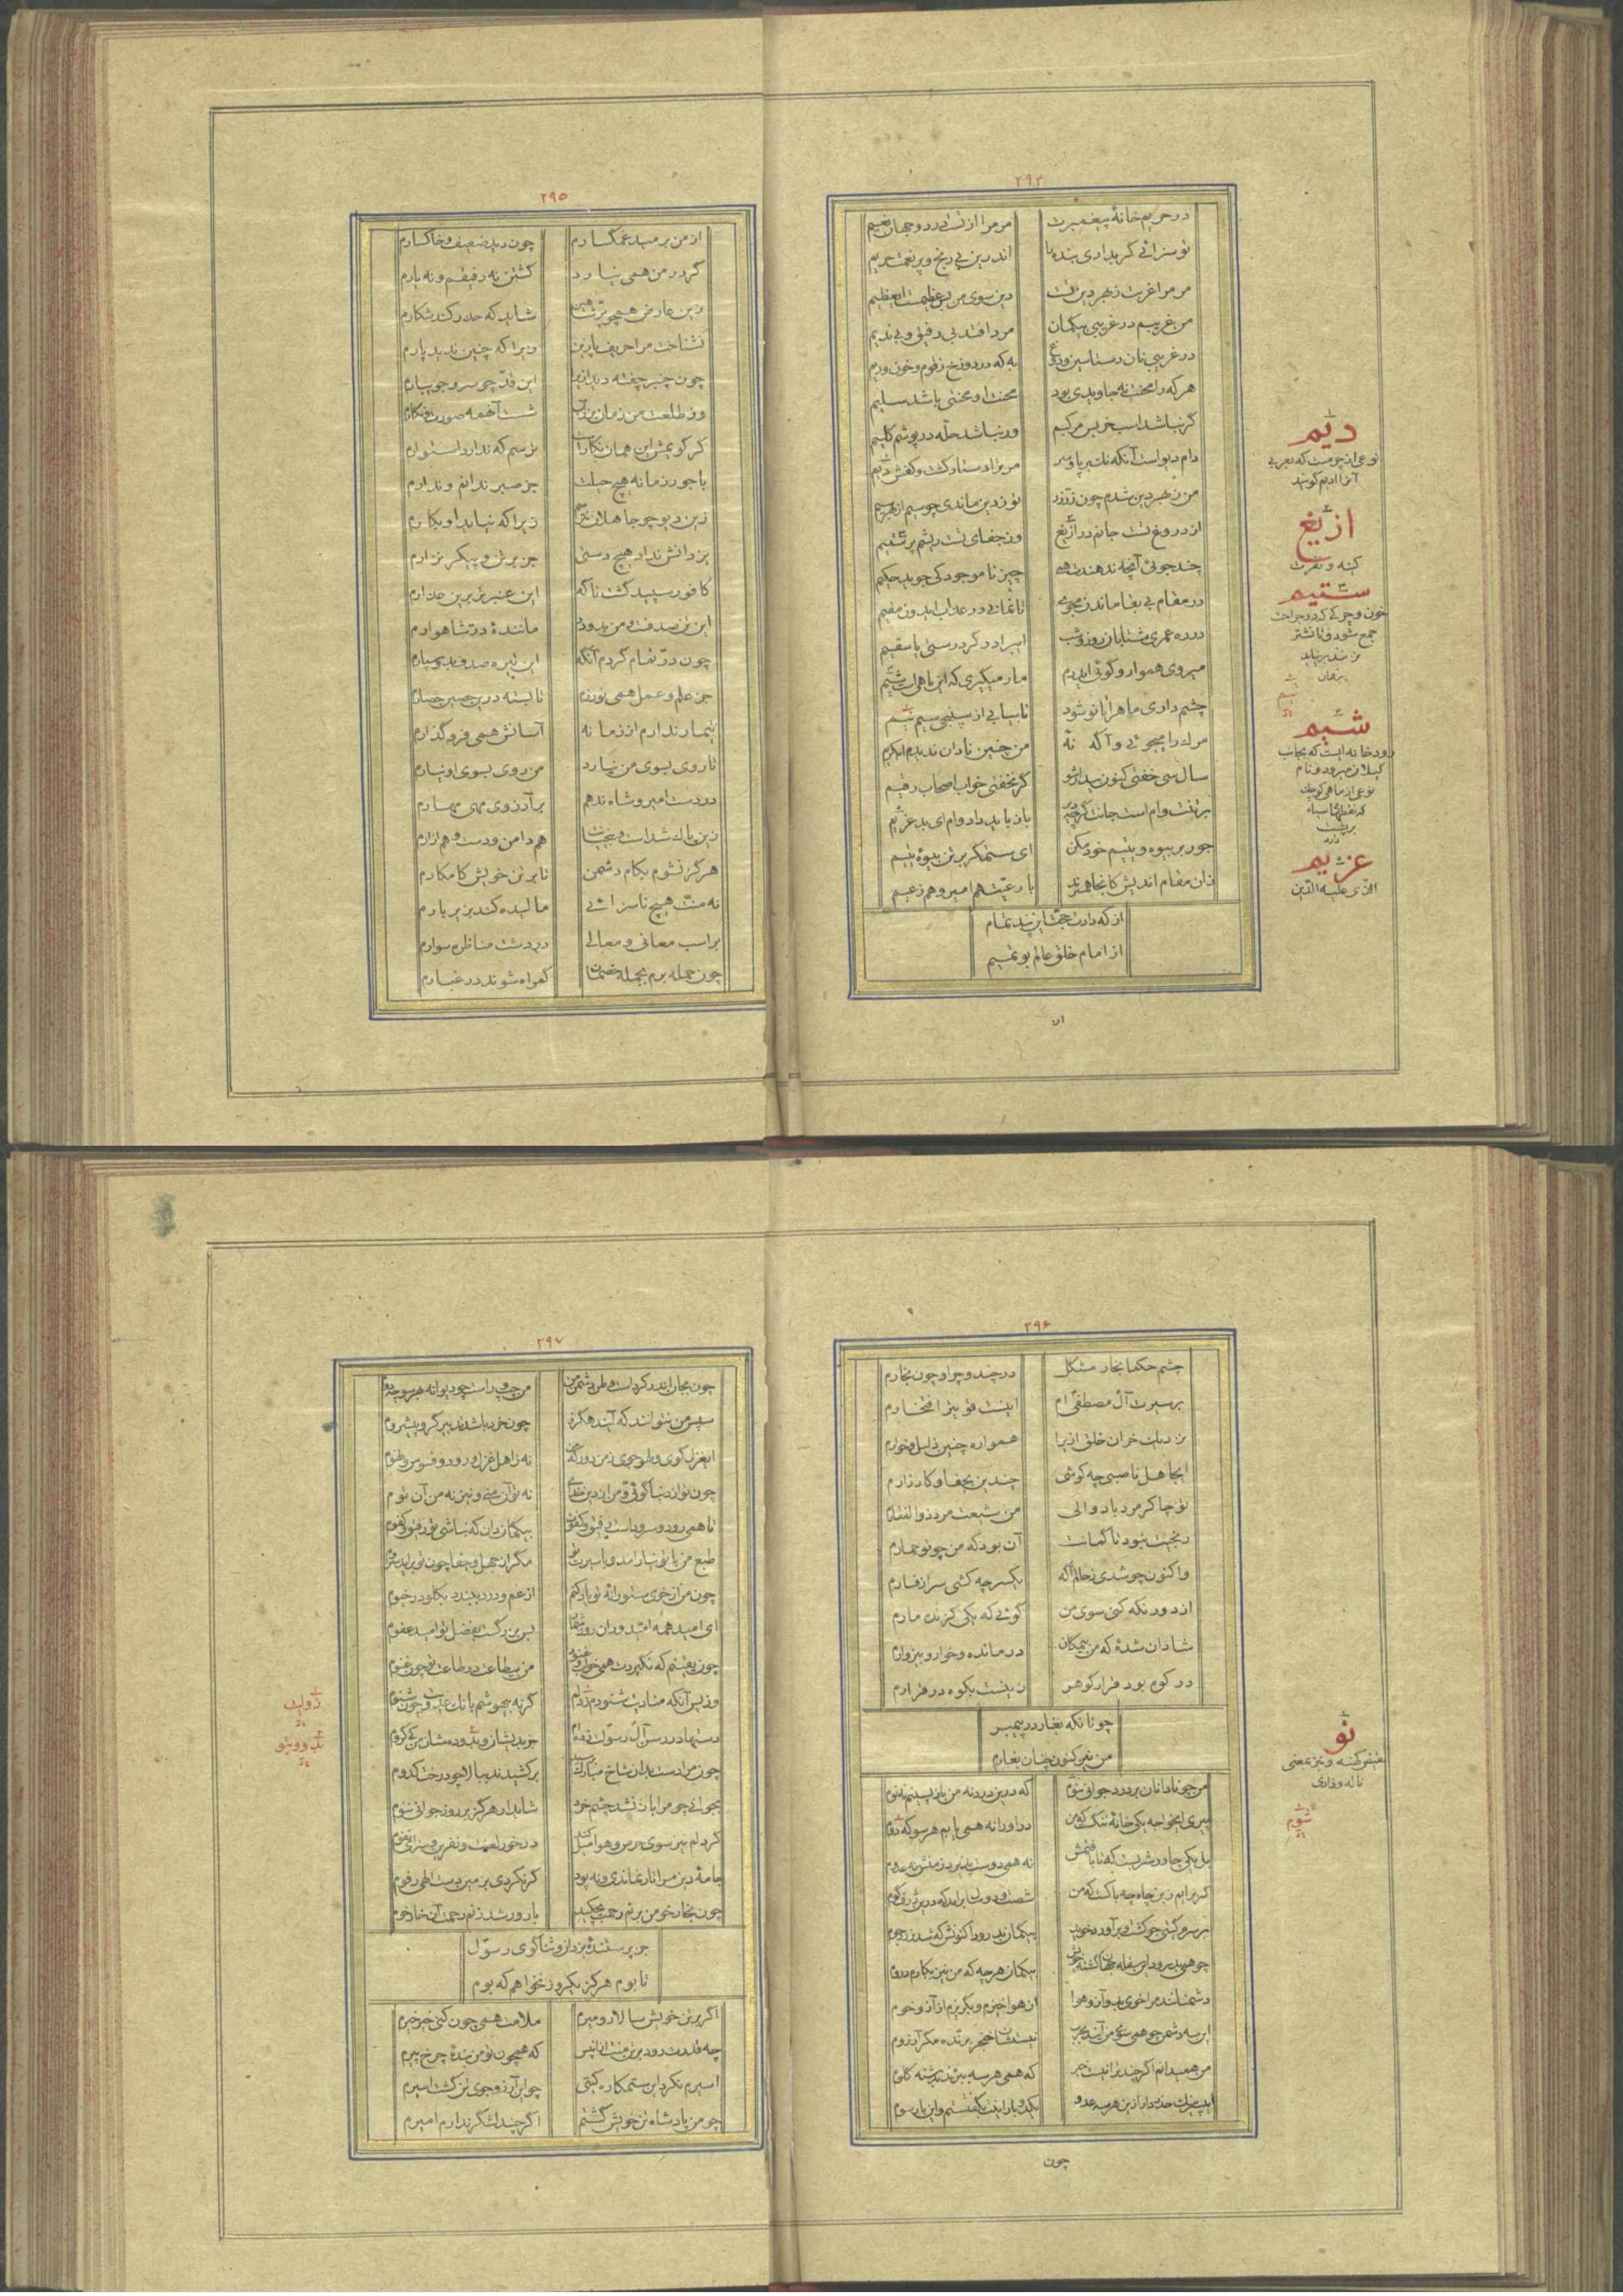 ۲۹۴
در حریم خانهٔ پیغمبرت مر مرا از تست دردو جهان نعیم
تو سزائی گر بداری بنده را اندرین بی رنج و پر نعمت حریم
مر مرا غربت ز بهر دین تست دین سوی من بس عظیمست ای عظیم
من غریبم در غریبی بیکمان مرد افتد بی رفیق و بی ندیم
در غریبی نان دستاسین و دوغ به که در دوزخ ز زقوم و خون و ریم
هرکه را محنت نه جاویدی بود محنت او محنتی باشد سلیم
گر نباشد اسب خر بس مرکبم ور نباشد حله در پوشم گلیم
دام دیو است آنکه بر پا و سر مر ترا دستار گشت و کفش دیم
من ز بهر دین شدم چون زر زرد تو ز دین ماندی چو سیم از بهر سیم
از دروغ تست جانم در ازیغ وز جفای تست ریشم پر ستیم
چند جوئی آنچه ندهندت همی چیز نا موجود کی جوید حکیم
در مقام بی بقا ماندن مجوی تا نمانی در عذاب ایدون مقیم
در ره عمری شتابان روز و شب ای برادر گر درستی یا سقیم
میروی هموار و گوئی ایدرم مار میگیری که این ماهی است شیم
چشم داری ماهرا تا نو شود تا بیابی از سپنجی سیم تیم
مرک را میجوئی و آگه نهٔ من چنین نادان ندیدم ای کریم
سال سی خفتی کنون بیدار شو گر نخفتی خواب اصحاب رقیم
بر تنت وام است جانت گرچه دیر باز باید داد وام ای بد غریم
جور بر بیوه و یتیم خود مکن ای ستمگر بر تن بیوه یتیم
زان مقام اندیش کانجا همبرند با رعیت هم امیر و هم زعیم
از که دادت حجت این پند تمام
از امام خلق عالم بو تمیم
دیم
نوعی از چرمست که بعربی
آنرا ادیم گویند
ازیغ
کینه و نفرت
ستیم
خون و چرکی که در جراحت
جمع شود و تا نشتر
نزنند بر نیاید
برهان
تیم
شیم
رودخانه ایست که بجانب
گیلان میرود و نام
نوعی از ماهی کوچک
که نقطهای سیاه
بر پشت
دارد
غریم
الذی علیه الدین
۲۹۵
از من برمید غمگسارم چون دید ضعیف و خاکسارم
گرد در من همی نیارد گشتن نه رفیقم و نه یارم
زین عارض همچو پر شاهین شاید که حذر کند شکارم
نشناخت مرا حریف پارین زیرا که چنین ندید پارم
چون چنبر چفته دید ازیرا این قد چو سرو جویبارم
وز طلعت من زمان بزرآب شست آنهمه صورت و نگارم
گر گویمش این همان نگار است ترسم که ندارد استوارم
با جور زمانه هیچ حیلت جز صبر ندانم و ندارم
زین دیو چو جاهلان نترسم زیرا که نیاید او بکارم
بر دانش ندارد هیچ دستی جز بر تن و پیکر نزارم
کافور سپید گشت ناگه این عنبر تر برین عذارم
این تن صدفست و من بدو در مانندهٔ در شاهوارم
چون در تمام گردم آنگه این تیره صدف بدو سپارم
جز علم و عمل همی نورزم تا بسته درین حصین حصارم
تیمار ندارم از زمانه آسانش همی فروگذارم
تا روی بسوی من نیارد من روی بسوی او نیارم
در دست امیر و شاه ندهم بر آرزوی مهی مهارم
زین پاک شداست و بی خیانت هم دامن و دست و هم ازارم
هرگز نشوم بکام دشمن تا بر تن خویش کامکارم
نه منت هیچ ناسزائی مالیده کند بزیر بارم
بر اسب معانی و معالی در دشت مناظره سوارم
چون حمله برم بجمله خصمان گمراه شوند در غبارم
۲۹۶
چشم حکما بخار مشکل در چند و چرا و چون بخارم
بر سیرت آل مصطفی ام اینست قوی تر افتخارم
نزدیک خران خلق ازیرا همواره چنین ذلیل و خوارم
ای جاهل ناصبی چه کوشی چندین بجفا و کارزارم
تو چاکر مرد با دوالی من شیعت مرد ذوالفقارم
رنجیت نبود تا گمانت آن بود که من چو تو حمارم
واکنون چو شدی ز حالم آگه یکسر چه کشی سر از فسارم
از دور نگه کنی سوی من گوئی که یکی گزنده مارم
شادان شدهٔ که من بیمکان درمانده و خوار و بی زوارم
در کوه بود قرار گوهر زینست بکوه در قرارم
چونانکه بغار در پیمبر
من نیز کنون چنان بغارم
من چو نادانان بر درد جوانی ننوم که درین درد نه من باز پسینم نه نوم
پیری ای خواجه یکی خانهٔ تنگ است که من در او را نه همی یابم هر سو که دوم
بل یکی چادر شومیست که تا بافتمش نه همی دوست پذیرد ز منش نه عدوم
گر برایم زین چاه چه باکست که من شصت و دو سال برآمد که درین ژرف گوم
بر سرو گیتی جو کشته و برآورده خوید بیگمان بدرود اکنونش که شد زرد جوم
چو همی بدرود این سفله جهان کشتهٔ خویش بیگمان هر چه که من نیز بکارم دروم
دشمنانند مرا خوی بد و آز و هوا از هوا خیزم و بگریزم از آز و خوم
این سه دشمن چو همی سوی من آیند بحرب نیست شان خنجر برنده مگر آرزوم
من همیدانم اگر چند ترا نیست خبر که همی هر سه ببرند بدشنه گلوم
ای پسر نیک حذر دار ازین هر سه عدو یک دو بار اینت بگفتستم و این بار سوم
چون
نو
نقیض کهنه و نیز بمعنی
ناله و زاری
شوم
۲۹۷
سپس من نتوانند که آیند هگرز چون خرد باشد تدبیر گر و پیشروم
ای غزل گوی و طرب جوی ز من دور که من نه ز اهل غزل و رود و فسوس و طنوم
چون تو از دنیا گوئی و من از دین خدای نه تو آن منی و نیز نه من آن توم
طبع من با تو نیارامد و با سیرت تو
چون من از خوی ستورانهٔ تو یاد کنم از غم و درد ببندد بگلو در خیوم
ای امید همه امیدوران روز شمار بس بزرگست بفضل تو امید عفوم
چون یقینم که نگیردت همی خواب و غنود من بیطاعت در طاعت تو چون غنوم
وز پس آنکه منادیت شنودم زدلم گر نه بیهوشم بانگ عدوت چون شنوم
چون مرا دست بدان شاخ مبارک برسید برکشیدند ببالا چو درخت کدوم
بجوانی چو مرا باز نشد چشم خرد شاید ار هرگز بر روز جوانی ننوم
جامهٔ دین مرا تار نماندی و نه پود گر نکردی بزمین دست الهی رفوم
چون بخار خو من بر نم رحمت بچکید بارور شد ز نم رحمت آن خار خوم
جز پرستندهٔ یزدان و ثناگوی رسول
تا بوم هرگز یکروز نخواهم که بوم
اگر بر تن خویش سالار و میرم ملامت همی چون کنی خیر خیرم
چه قدرت رود بر تن منت ازان پس که همچون تو من بندهٔ چرخ پیرم
اسیرم نکرد این ستمکاره گیتی چو این آرزو جوی تن گشت اسیرم
چو من پادشاه تن خویش گشتم اگر چند لشکر ندارم امیرم